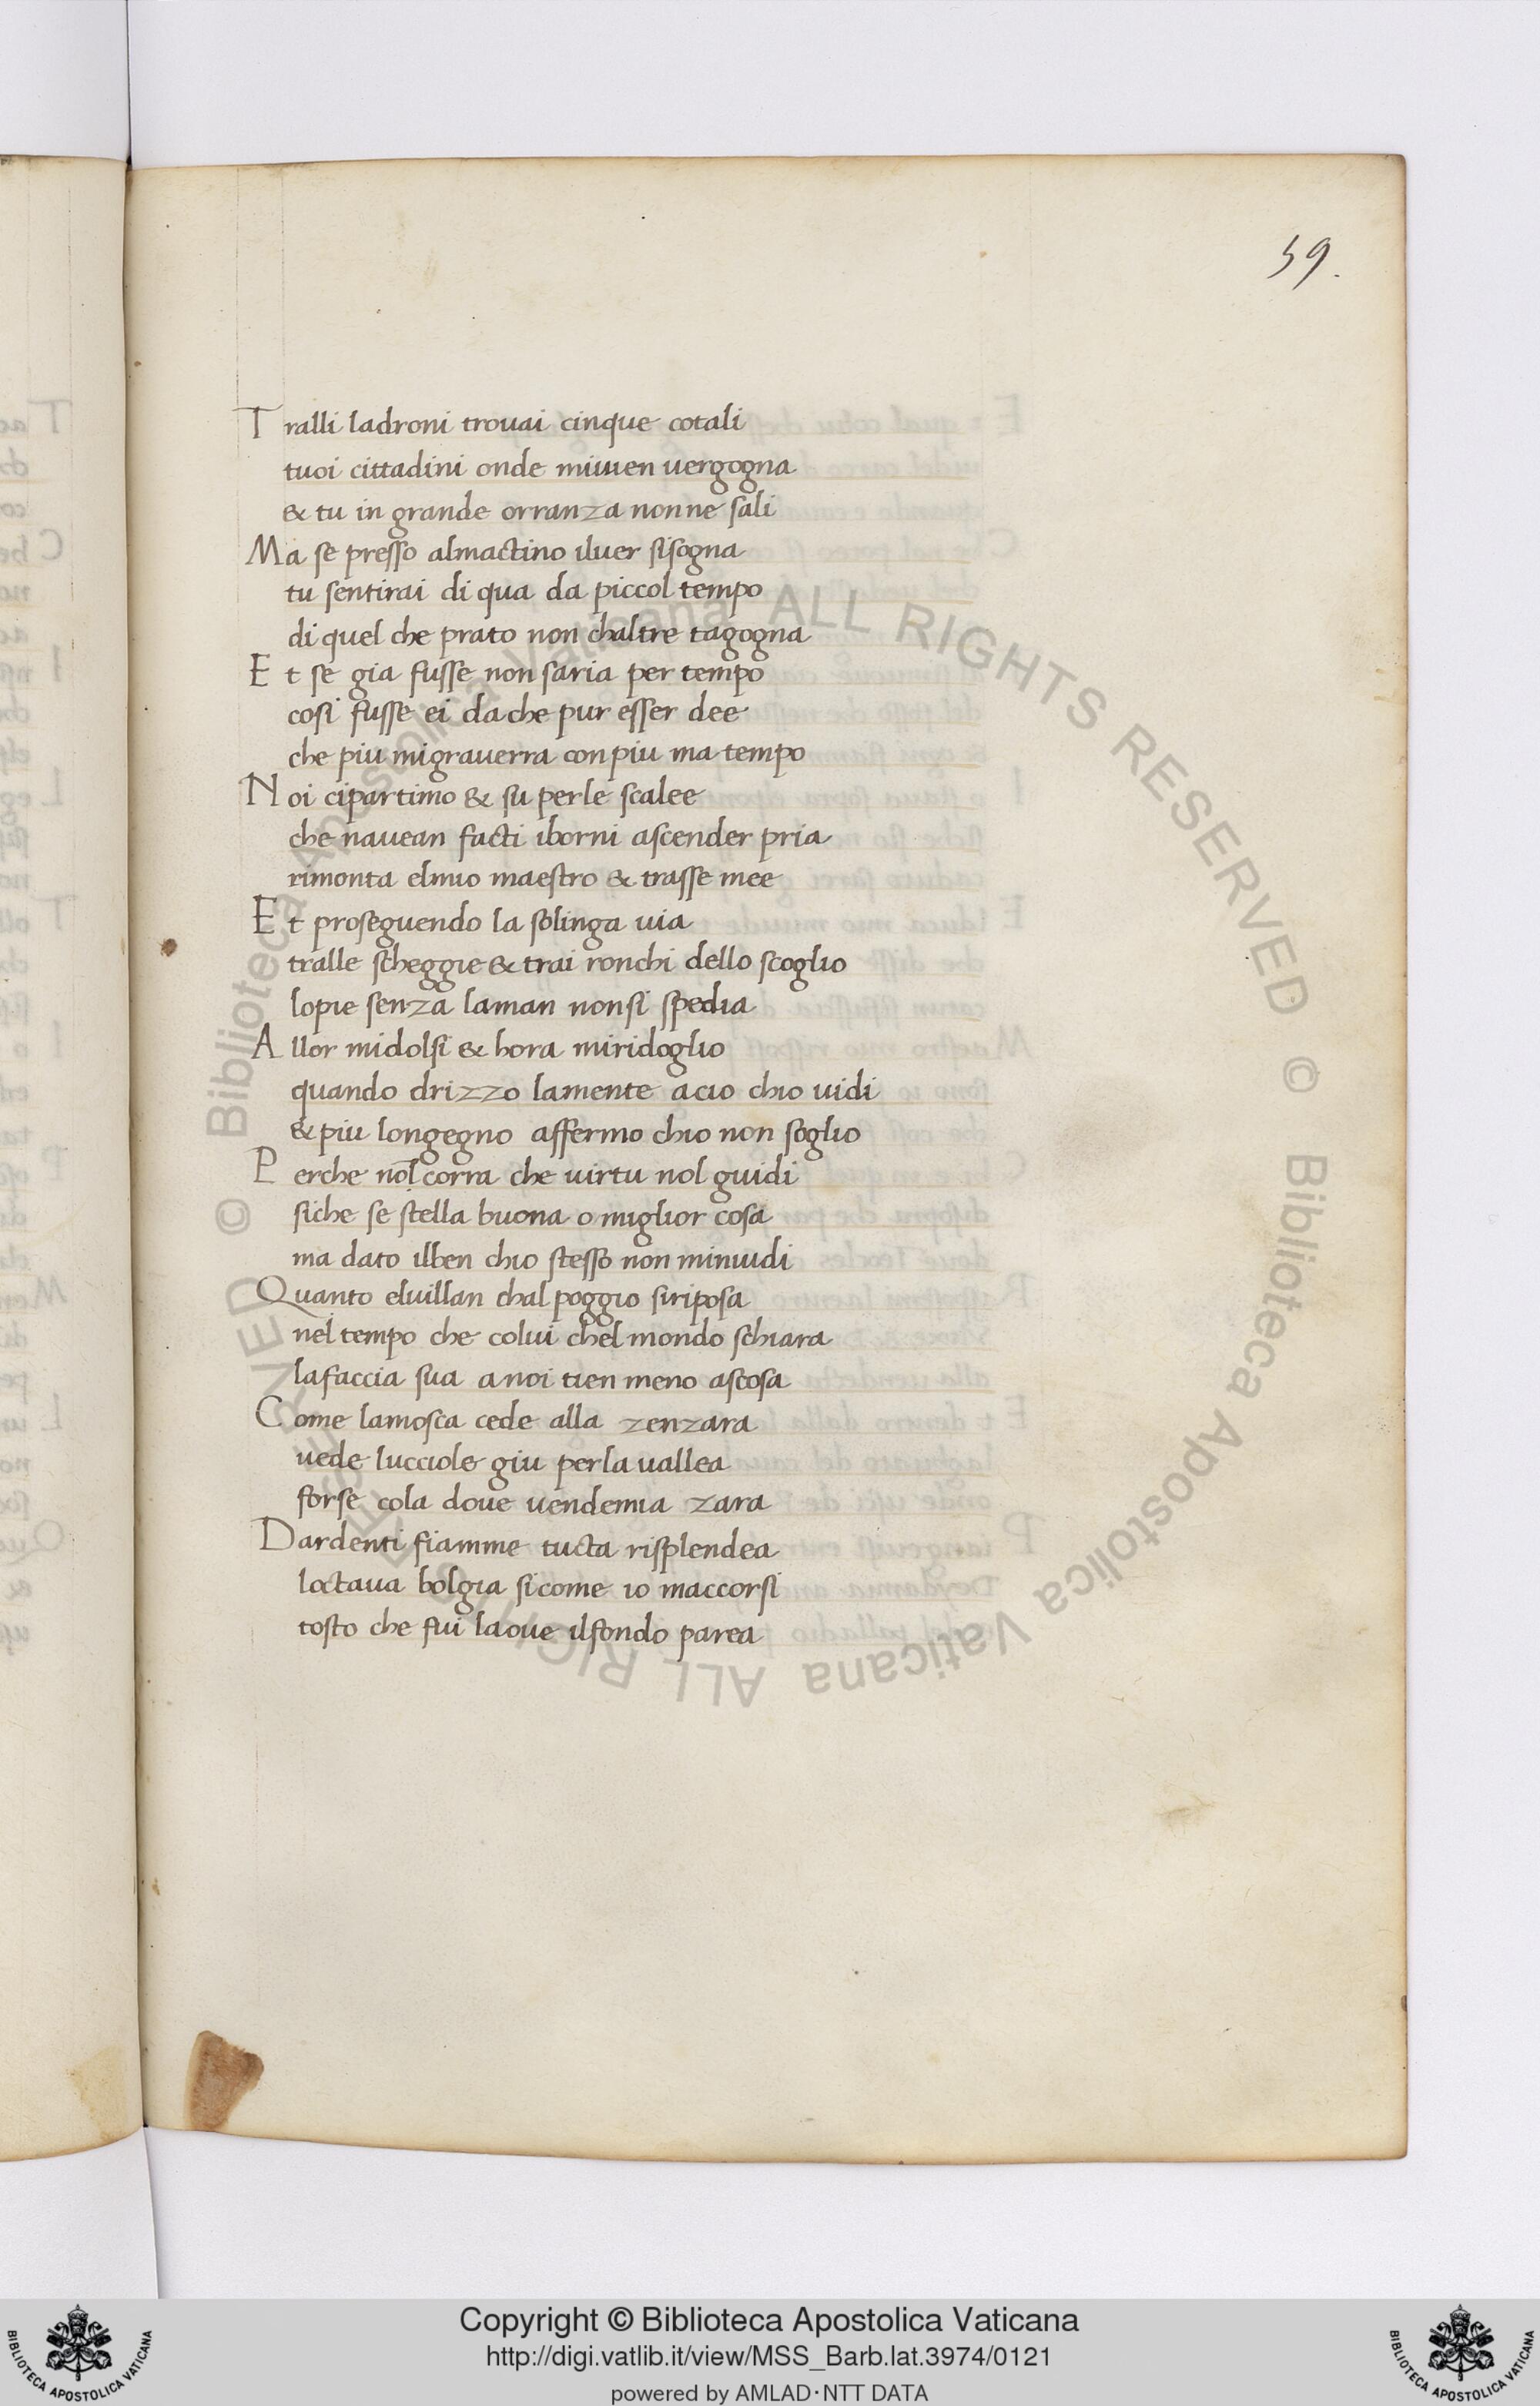 59.
Tralli ladroni trouai cinque cotali
tuoi cittadini onde miuien uergogna
& tu in grande orranza non ne sali
Ma se presso almactino iluer sisogna
tu sentirai di qua da piccol tempo
di quel che prato non chaltre tagogna
Et se gia fusse non saria per tempo
cosi fusse ei da che pur esser dee
che piu migrauerra con piu ma tempo
Noi cipartimo & su perle scalee
che nauean facti iborni ascender pria
rimonta elmio maestro & trasse mee
Et proseguendo la solinga uia
tralle scheggie & trai ronchi dello scoglio
lopie senza laman nonsi spedia
Allor midolsi & hora miridoglio
quando drizzo lamente acio chio uidi
& piu longegno affermo chio non soglio
Perche nol corra che uirtu nol guidi
siche se stella buona o miglior cosa
ma dato ilben chio stesso non minuidi
Quanto eluillan chal poggio siriposa
nel tempo che colui chel mondo schiara
lafaccia sua a noi tien meno ascosa
Come lamosca cede alla zenzara
uede lucciole giu perla uallea
forse cola doue uendemia zara
Dardenti fiamme tucta risplendea
loctaua bolgia sicome io maccorsi
tosto che fui laoue ilfondo parea
© Biblioteca Apostolica Vaticana ALL RIGHTS RESERVED © Biblioteca Apostolica Vaticana ALL RIGHTS RESERVED
Copyright © Biblioteca Apostolica Vaticana
http://digi.vatlib.it/view/MSS_Barb.lat.3974/0121
powered by AMLAD·NTT DATA
BIBLIOTECA APOSTOLICA VATICANA
BIBLIOTECA APOSTOLICA VATICANA